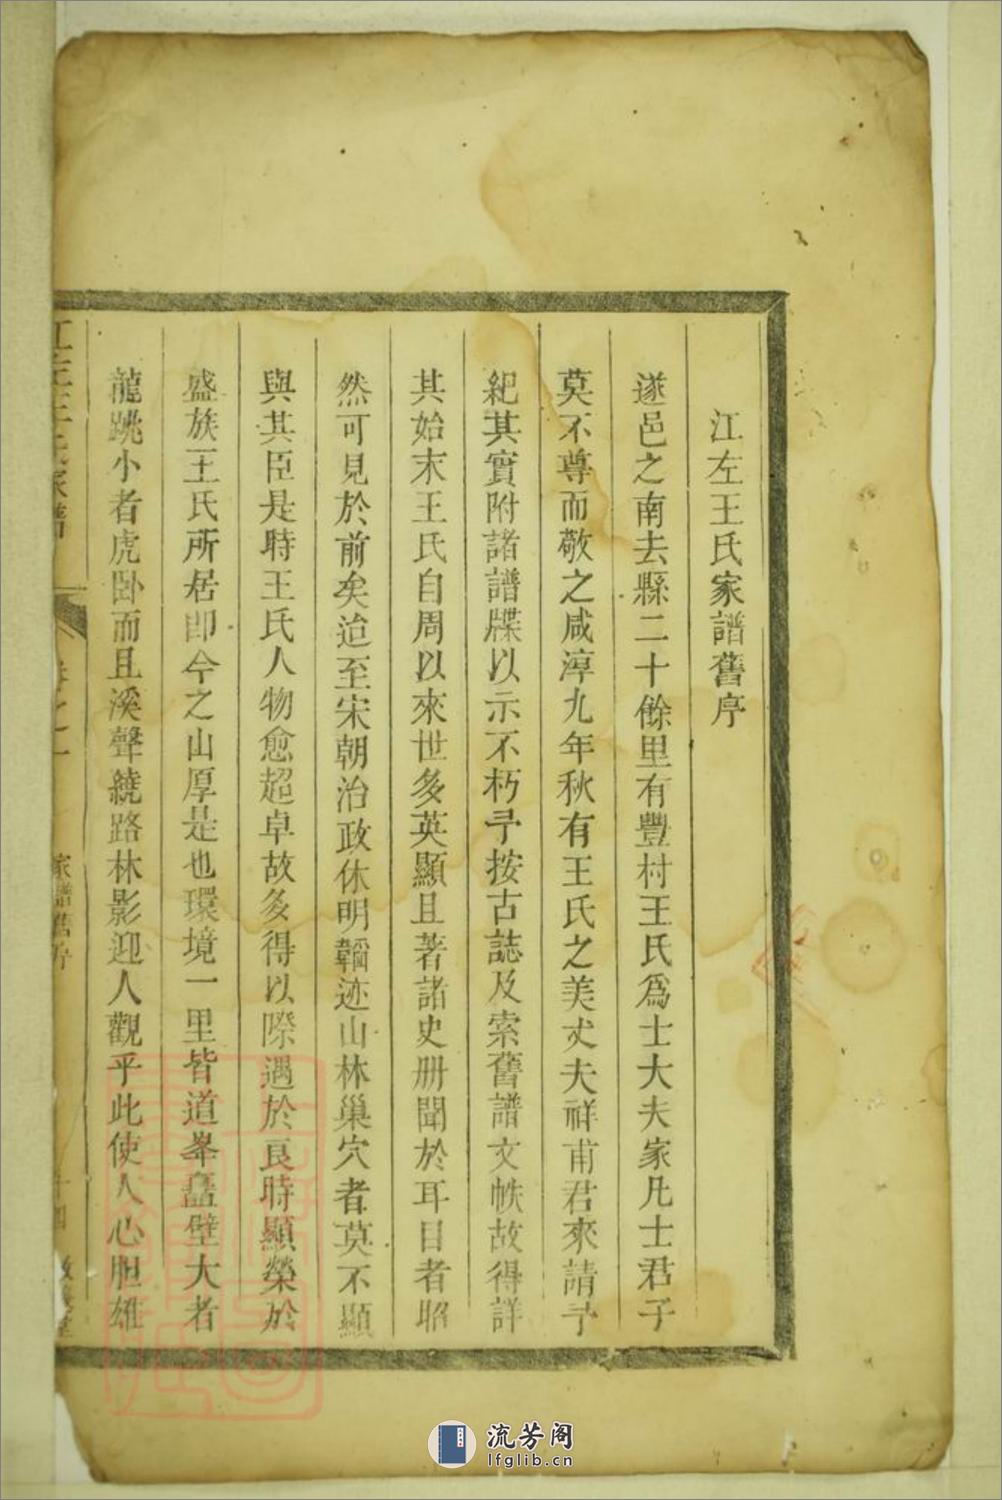 江左王氏家譜舊序
遂邑之南去縣二十餘里有豐村王氏爲士大夫家凡士君子
莫不尊而敬之咸淳九年秋有王氏之美丈夫祥甫君來請予
紀其實附諸譜牒以示不朽予按古誌及索舊譜文帙故得詳
其始末王氏自周以來世多英顯且著諸史册聞於耳目者昭
然可見於前矣迨至宋朝治政休明韜迹山林巢穴者莫不顯
與其臣是時王氏人物愈超卓故多得以際遇於良時顯榮於
盛族王氏所居即今之山厚是也環境一里皆道峯矗壁大者
龍跳小者虎卧而且溪聲繞路林影迎人觀乎此使人心胆雄
江左王氏家譜
卷之一
家譜舊序
十四
流芳阁
lfglib.cn